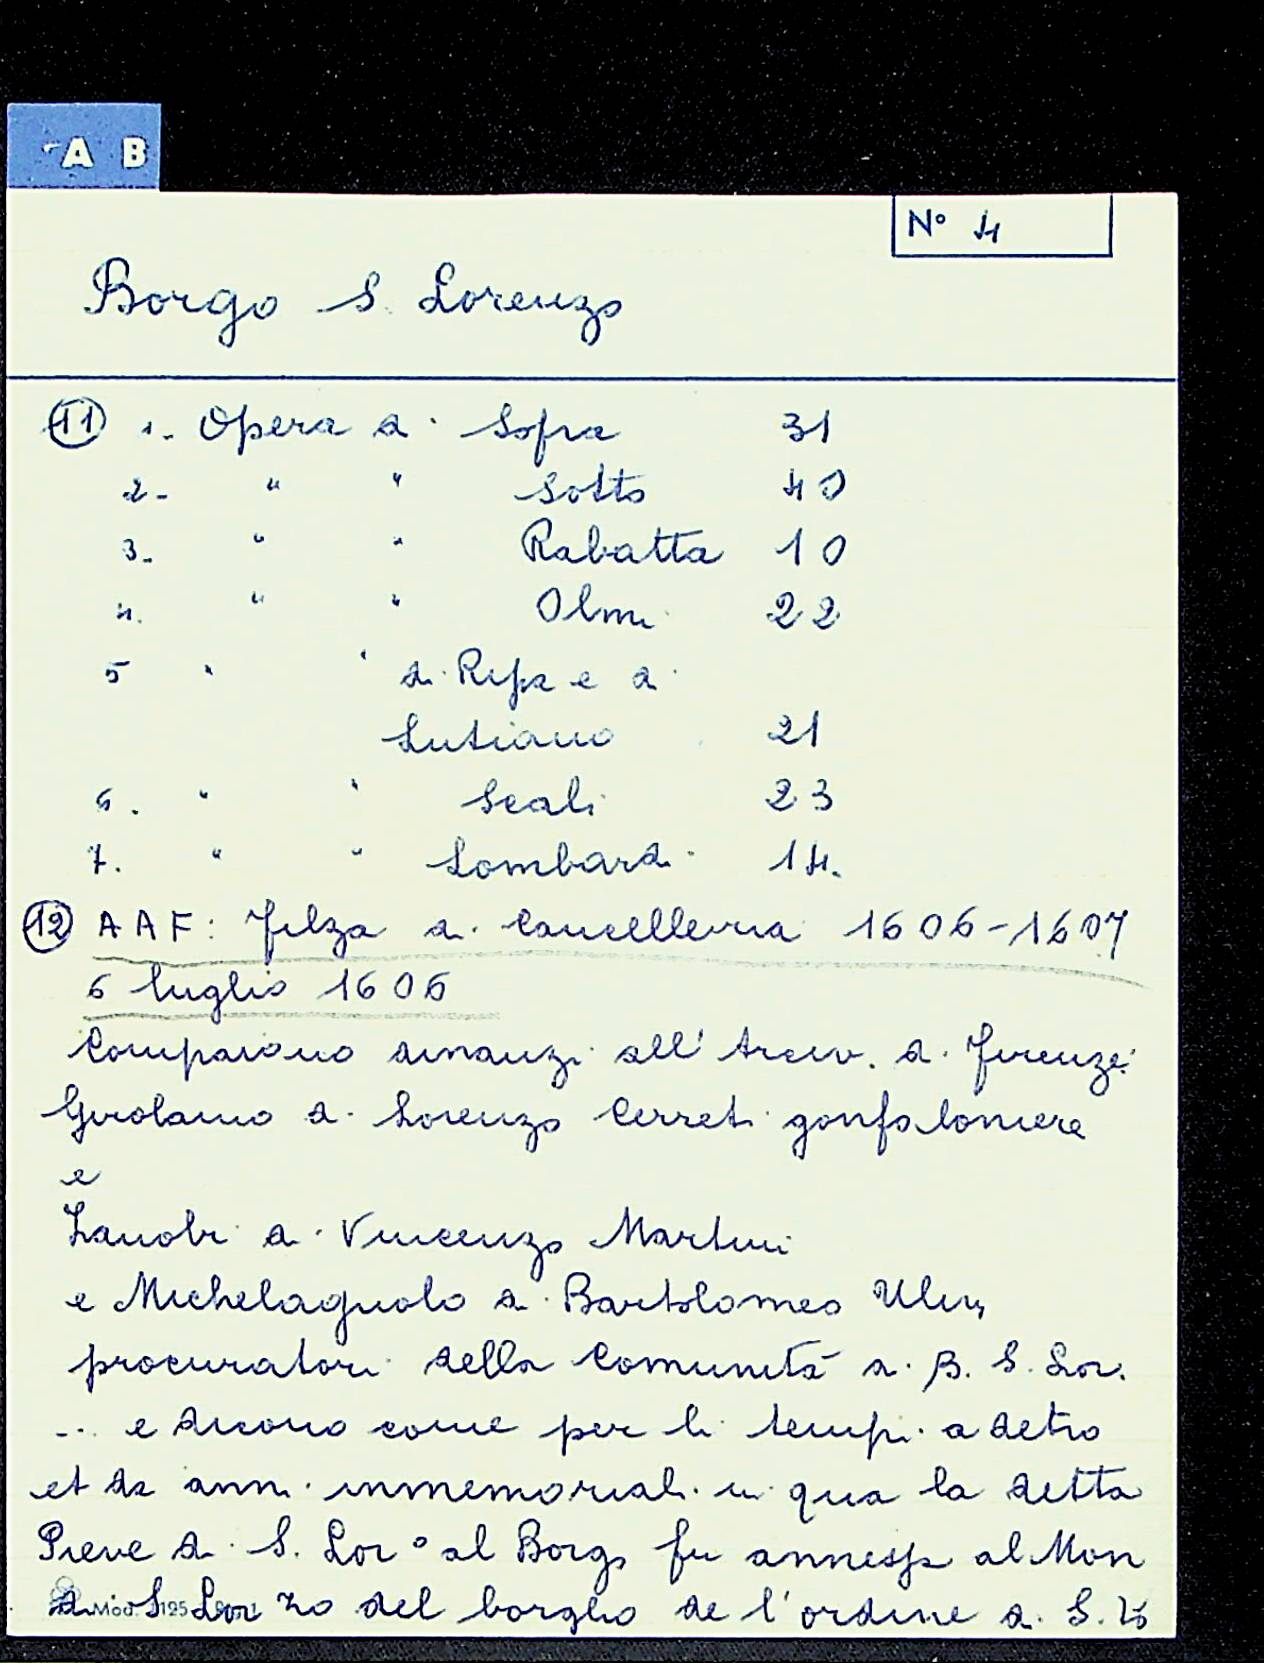 A B
Nº 4
Borgo S. Lorenzo
11 1. Opera di Sopra 31
2- " " Sotto 40
3. " " Rabatta 10
4. " " Olmi 22
5 " " di Ripa e di
Lutiano 21
6. " " Scali 23
7. " " Lombardi 14.
12 AAF: Filza di Cancelleria 1606-1607
6 luglio 1606
Compaiono dinanzi all'Arciv. di Firenze:
Girolamo di Lorenzo Cerreti gonfaloniere
e
Zanobi di Vincenzo Martini
e Michelagnolo di Bartolomeo
procuratori della Comunità di B. S. Lor.
... e dicono come per li tempi adetro
et da anni inmemoriali in qua la detta
Pieve di S. Lorº al Borgo fu annessa al Mon
di S Lor zo del borgho de l'ordine di S.